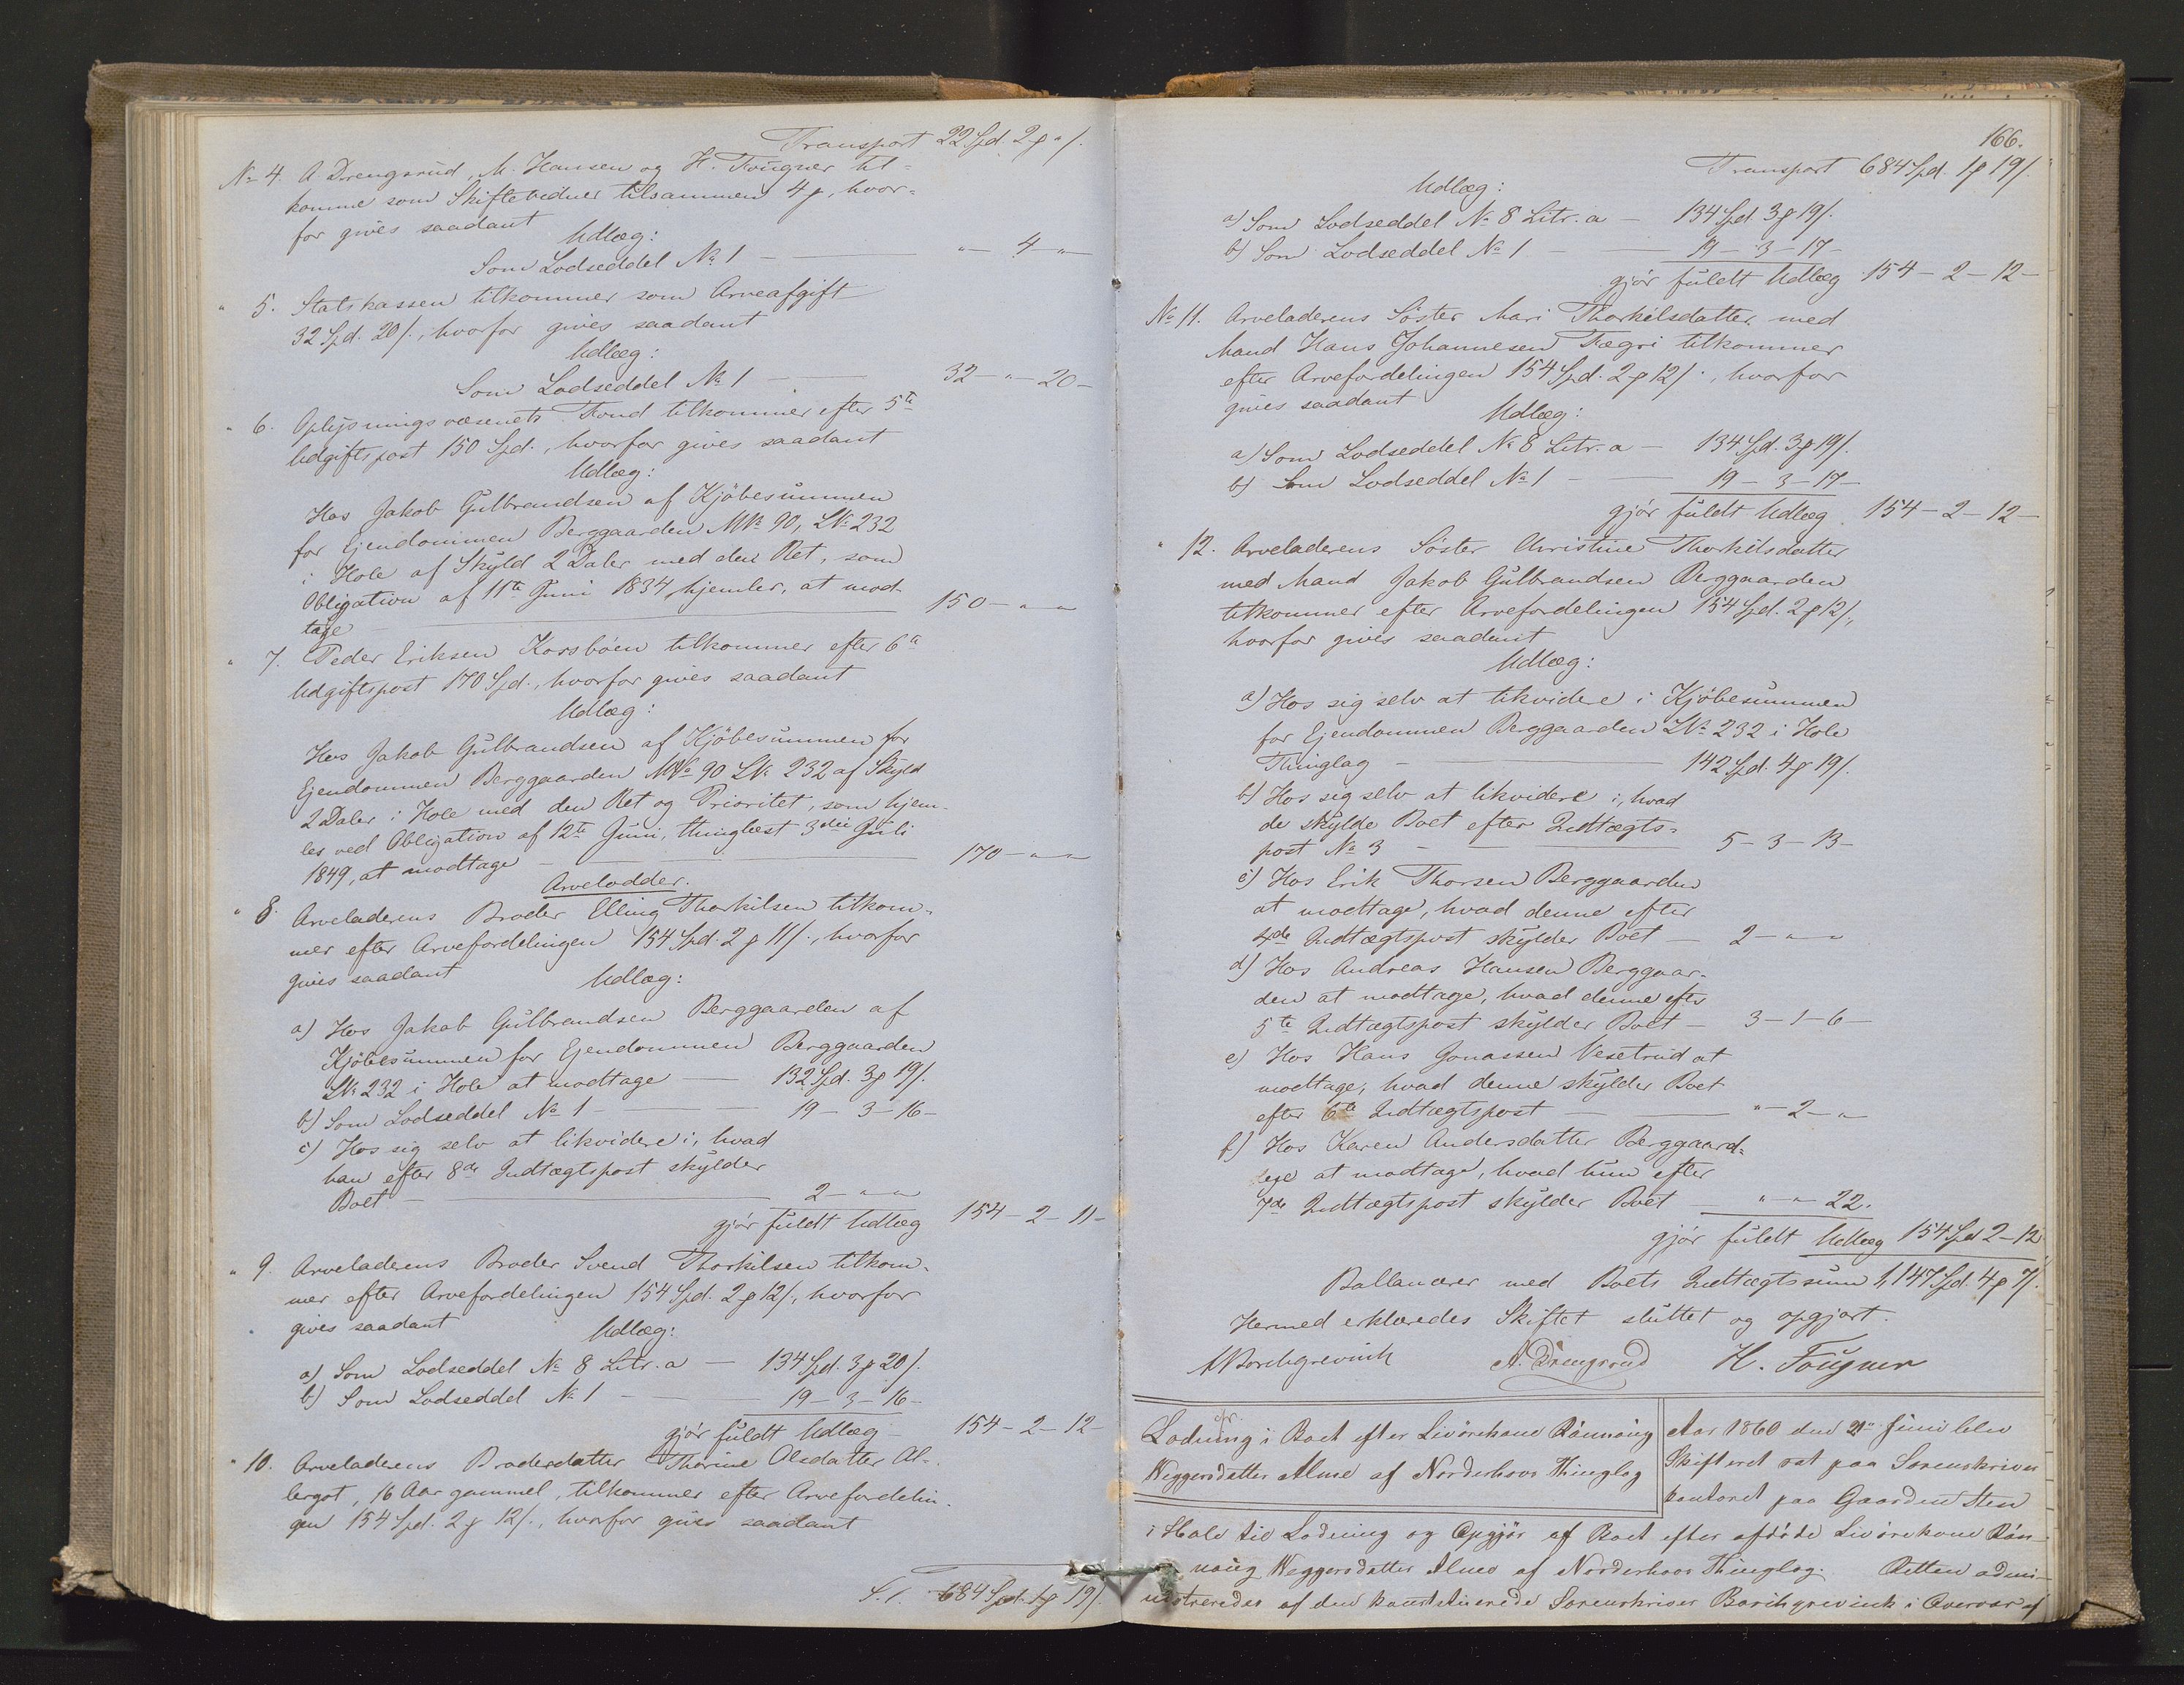 Transport 22 Spd. 2 ꝑ " /.
No 4. A. Drengsrud, M. Hansen og H. Fougner til-
komme som Skiftevidner tilsammen 4 ꝑ, hvor-
for gives saadant
Udlæg:
Som Lodseddel No 1 — " — 4 — "
" 5. Statskassen tilkommer som Arveafgift
32 Spd. 20 /., hvorfor gives saadant
Udlæg:
Som Lodseddel No 1 — 32 — " — 20 —
" 6. Oplysningsvæsenets Fond tilkommer efter 5te
Udgiftspost 150 Spd., hvorfor gives saadant
Udlæg:
Hos Jakob Gulbrandsen af Kjöbesummen
for Ejendommen Berggaarden MNo 90, LNo 232
i Hole af Skyld 2 Daler med den Ret, som
Obligation af 11te Juni 1834 hjemler, at mod-
tage — 150 — " — "
" 7. Peder Eriksen Korsböen tilkommer efter 6te
Udgiftspost 170 Spd., hvorfor gives saadant
Udlæg:
Hos Jakob Gulbrandsen af Kjöbesummen for
Ejendommen Berggaarden MNo 90 LNo 232 af Skyld
2 Daler i Hole med den Ret og Prioritet, som hjem-
les ved Obligation af 12te Juni, thinglæst 3die Juli
1849, at modtage — 170 — " — "
Arvelodder.
" 8. Arveladerens Broder Elling Thorkilsen tilkom-
mer efter Arvefordelingen 154 Spd. 2 ꝑ 11 /., hvorfor
gives saadant
Udlæg:
a) Hos Jakob Gulbrandsen Berggaarden af
Kjöbesummen for Ejendommen Berggaarden
LNo 232 i Hole at modtage — 132 Spd. 3 ꝑ 19 /.
b) Som Lodseddel No 1 — 19 — 3 — 16 —
c) Hos sig selv at likvidere i, hvad
han efter 8de Indtægtspost skylder
Boet — 2 — " — "
gjör fuldt Udlæg 154 — 2 — 11 —
" 9. Arveladerens Broder Svend Thorkilsen tilkom-
mer efter Arvefordelingen 154 Spd. 2 ꝑ 12 /., hvorfor
gives saadant
Udlæg:
a) Som Lodseddel No 8 Litr. a — 134 Spd. 3 ꝑ 20 /.
b) Som Lodseddel No 1 — 19 — 3 — 16 —
gjör fuldt Udlæg — 154 — 2 — 12 —
" 10. Arveladerens Broderdatter Thorine Olsdatter Al-
bergot, 16 Aar gammel, tilkommer efter Arvefordelin-
gen 154 Spd. 2 ꝑ 12 /., hvorfor gives saadant
684 Spd. 1 ꝑ 19 /.
166.
Transport 684 Spd. 1 ꝑ 19 /.
Udlæg:
a) Som Lodseddel No 8 Litr. a — 134 Spd. 3 ꝑ 19 /.
b) Som Lodseddel No 1 — 19 — 3 — 17 —
gjör fuldt Udlæg 154 — 2 — 12 —
No 11. Arveladerens Söster Mari Thorkilsdatter med
Mand Hans Johannesen Fægri tilkommer
efter Arvefordelingen 154 Spd. 2 ꝑ 12 /., hvorfor
gives saadant
Udlæg:
a) Som Lodseddel No 8 Litr. a — 134 Spd. 3 ꝑ 19 /.
b) Som Lodseddel No 1 — 19 — 3 — 17 —
gjör fuldt Udlæg 154 — 2 — 12 —
" 12. Arveladerens Söster Christine Thorkilsdatter
med Mand Jakob Gulbrandsen Berggaarden
tilkommer efter Arvefordelingen 154 Spd. 2 ꝑ 12 /.,
hvorfor gives saadant
Udlæg:
a) Hos sig selv at likvidere i Kjöbesummen
for Ejendommen Berggaarden LNo 232 i Hole
Thinglag — 142 Spd. 4 ꝑ 19 /.
b) Hos sig selv at likvidere i, hvad
de skylde Boet efter Indtægts-
post No 3 — 5 — 3 — 13 —
c) Hos Erik Thorsen Berggaarden
at modtage, hvad denne efter
4de Indtægtspost skylder Boet — 2 — " — "
d) Hos Andreas Hansen Berggaar-
den at modtage, hvad denne efter
5te Indtægtspost skylder Boet — 3 — 1 — 6 —
e) Hos Hans Jonassen Vesetrud at
modtage, hvad denne skylder Boet
efter 6te Indtægtspost — " — 2 — "
f) Hos Karen Andersdatter Berggaard-
eje at modtage, hvad hun efter
7de Indtægtspost skylder Boet — " — " 22.
gjör fuldt Udlæg 154 Spd 2 — 12
Ballancerer med Boets Indtægtssum 1,147 Spd. 4 ꝑ 7 /.
Hermed erklæredes Skiftet sluttet og opgjort.
Borchgrevink A. Drengsrud H. Fougner
Lodning i Boet efter Livörekone Rønnaug
Weggersdatter Alme af Norderhovs Thinglag
Aar 1860 den 21de Juni blev
Skifteret sat paa Sorenskriver
kontoret paa Gaarden Steen
i Hole til Lodning og Opgjör af Boet efter afdöde Livörekone Røn-
naug Weggersdatter Alme af Norderhovs Thinglag. Retten admi-
nistreredes af den konstituerede Sorenskriver Borchgrevink i Overvær af